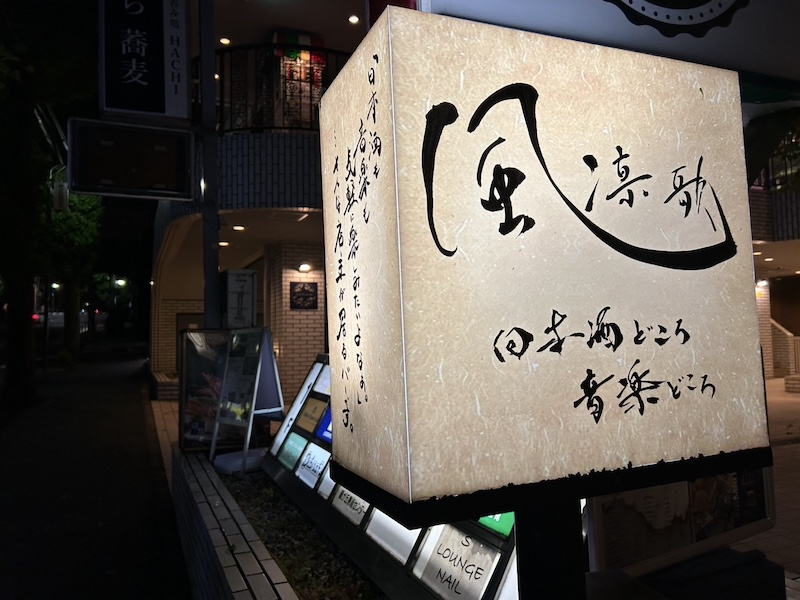 風凛歌
日本酒どころ
音楽どころ
「日本酒も
音楽も
気軽に楽しみたいよなぁ。」
そんな店主が居るバーです。
HACHI
蕎麦
S
LOUNGE
NAIL